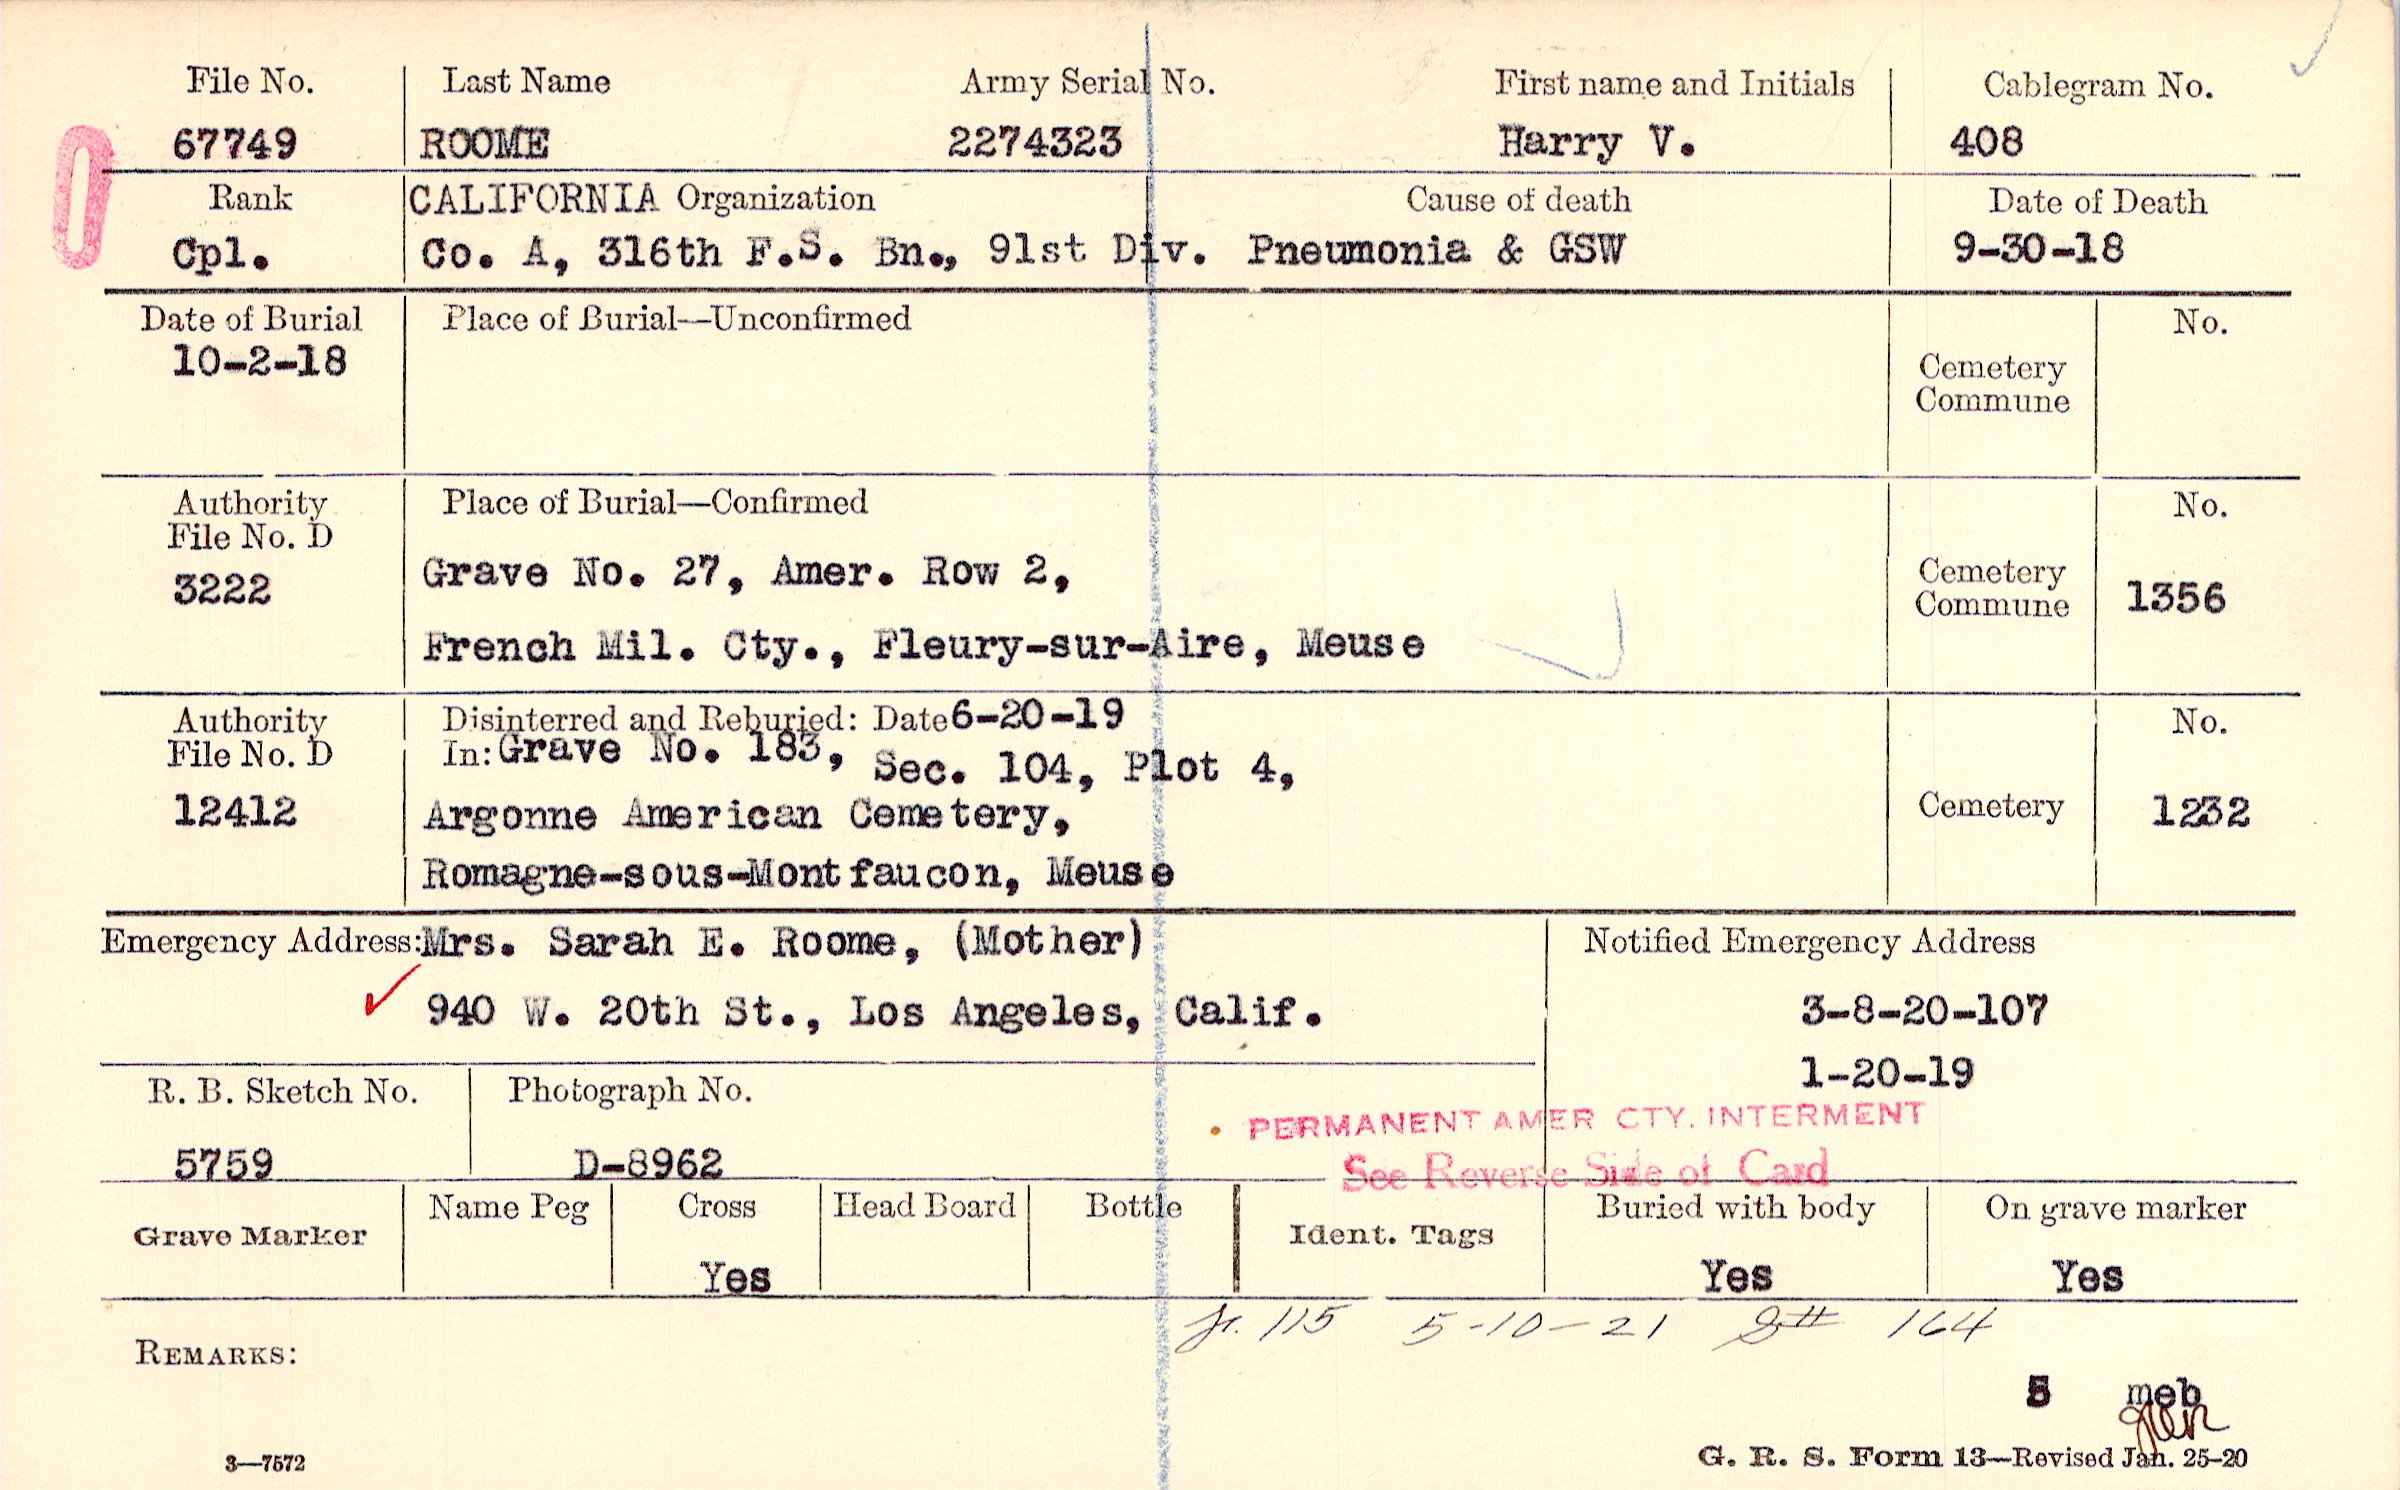 File No. Last Name Army Serial No. First name and Initials Cablegram No.
67749 ROOME 2274323 Harry V. 408
Rank CALIFORNIA Organization Cause of death Date of Death
Cpl. Co. A, 316th F.S. Bn., 91st Div. Pneumonia & GSW 9-30-18
Date of Burial Place of Burial—Unconfirmed No.
10-2-18
Cemetery
Commune
Authority Place of Burial—Confirmed No.
File No. D
3222 Grave No. 27, Amer. Row 2, Cemetery
Commune 1356
French Mil. Cty., Fleury-sur-Aire, Meuse
Authority Disinterred and Reburied: Date 6-20-19 No.
File No. D In: Grave No. 183, Sec. 104, Plot 4,
12412 Argonne American Cemetery, Cemetery 1232
Romagne-sous-Montfaucon, Meuse
Emergency Address: Mrs. Sarah E. Roome, (Mother) Notified Emergency Address
940 W. 20th St., Los Angeles, Calif. 3-8-20-107
1-20-19
R. B. Sketch No. Photograph No.
PERMANENT AMER CTY. INTERMENT
5759 D-8962 See Reverse Side of Card
Name Peg Cross Head Board Bottle Buried with body On grave marker
Grave Marker Ident. Tags
Yes Yes Yes
115 5-10-21 164
REMARKS:
5 meb
3—7572 G. R. S. Form 13—Revised Jan. 25-20